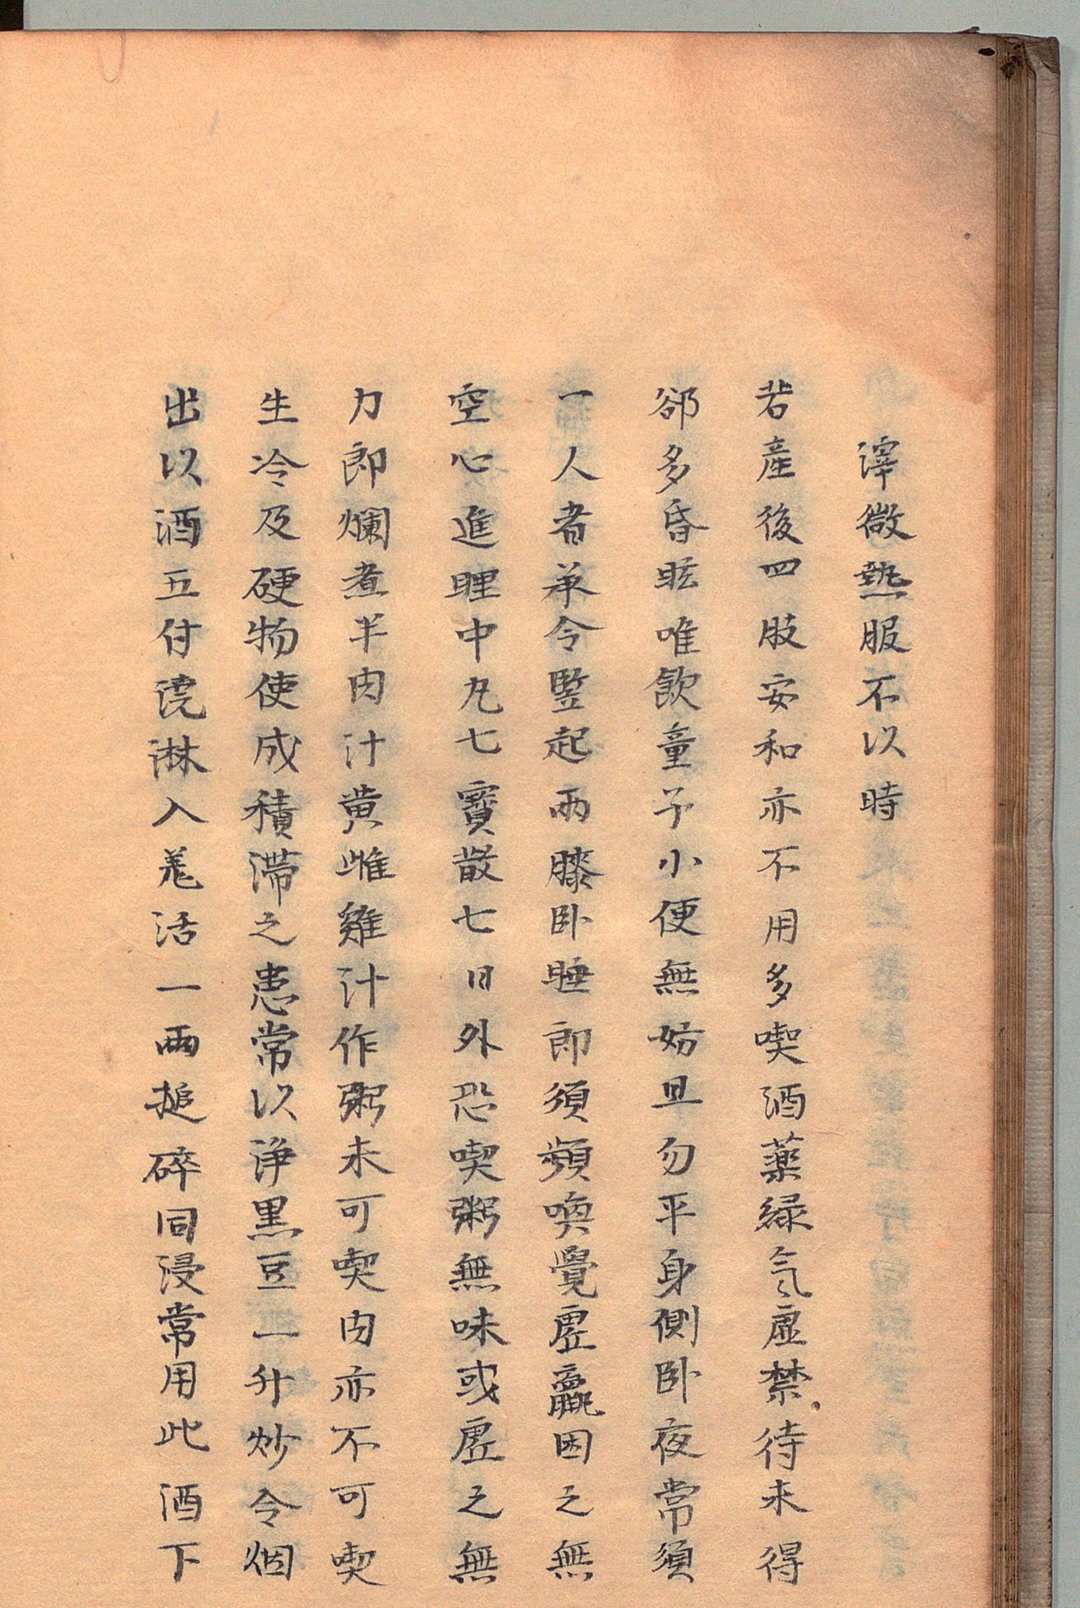 滓微熱服不以時
若產後四肢安和亦不用多喫酒藥緑气虛禁待未得
郤多昏眩唯飲童子小便無妨且勿平身側卧夜常須
一人者承令竪起兩膝卧睡即須頻喚覺虛羸困之無
空心進理中丸七寶散七日外恐喫粥無味或虛之無
力即爛煮羊肉汁黄雌雞汁作粥未可喫肉亦不可喫
生冷及硬物使成積滯之患常以淨黒豆一升炒令烟
出以酒五付澆淋入羌活一兩搥碎同浸常用此酒下